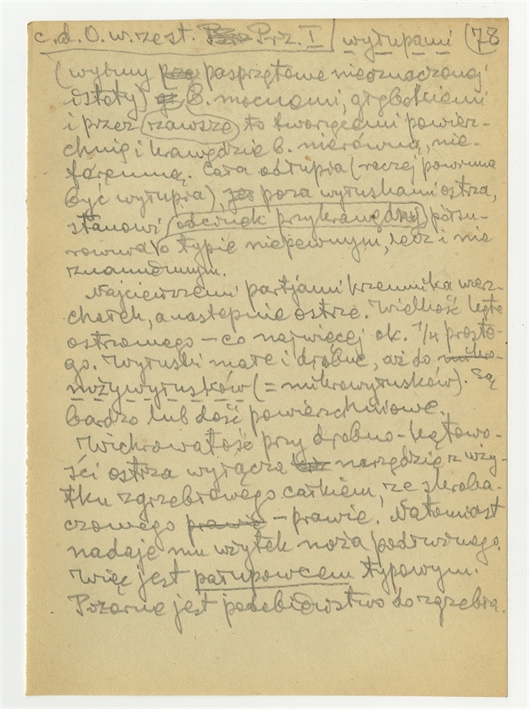 c.d. O. w. zest. Prz. I wyłupami (78
(wyjmy pasprzętowe nieoznaczonej
istoty) B. mocnemi, głębokiemi
i przez zawsze, to tworzącemi powierz-
chnię i krawędzie b. nierówną, nie-
foremną. Cała odłupia (raczej powinna
być wyłupia), poza wyłuskami ostrza,
stanowi odcinek przykrawędny półsu-
rowca o typie niepewnym, lecz i nie
znamiennym.
Najcieńszemi partjami krzemnika wierz-
chołek, a następnie ostrze. Wielkość kąta
ostrzowego – co najwięcej ok. 1/4 proste-
go. Wyłuski małe i drobne, aż do mikro-
możywyłusków (= mikrowyłusków). Są
bardzo lub dość powierzchniowe.
Wichrowatość przy drobno-kątowo-
ści ostrza wyłącza narzędzie z uży-
tku zgrzebłowego całkiem, ze skroba-
czowego prawie – prawie. Natomiast
nadaje mu użytek noża
Więc jest typowym.
Pozorne jest podobieństwo do zgrzebła.